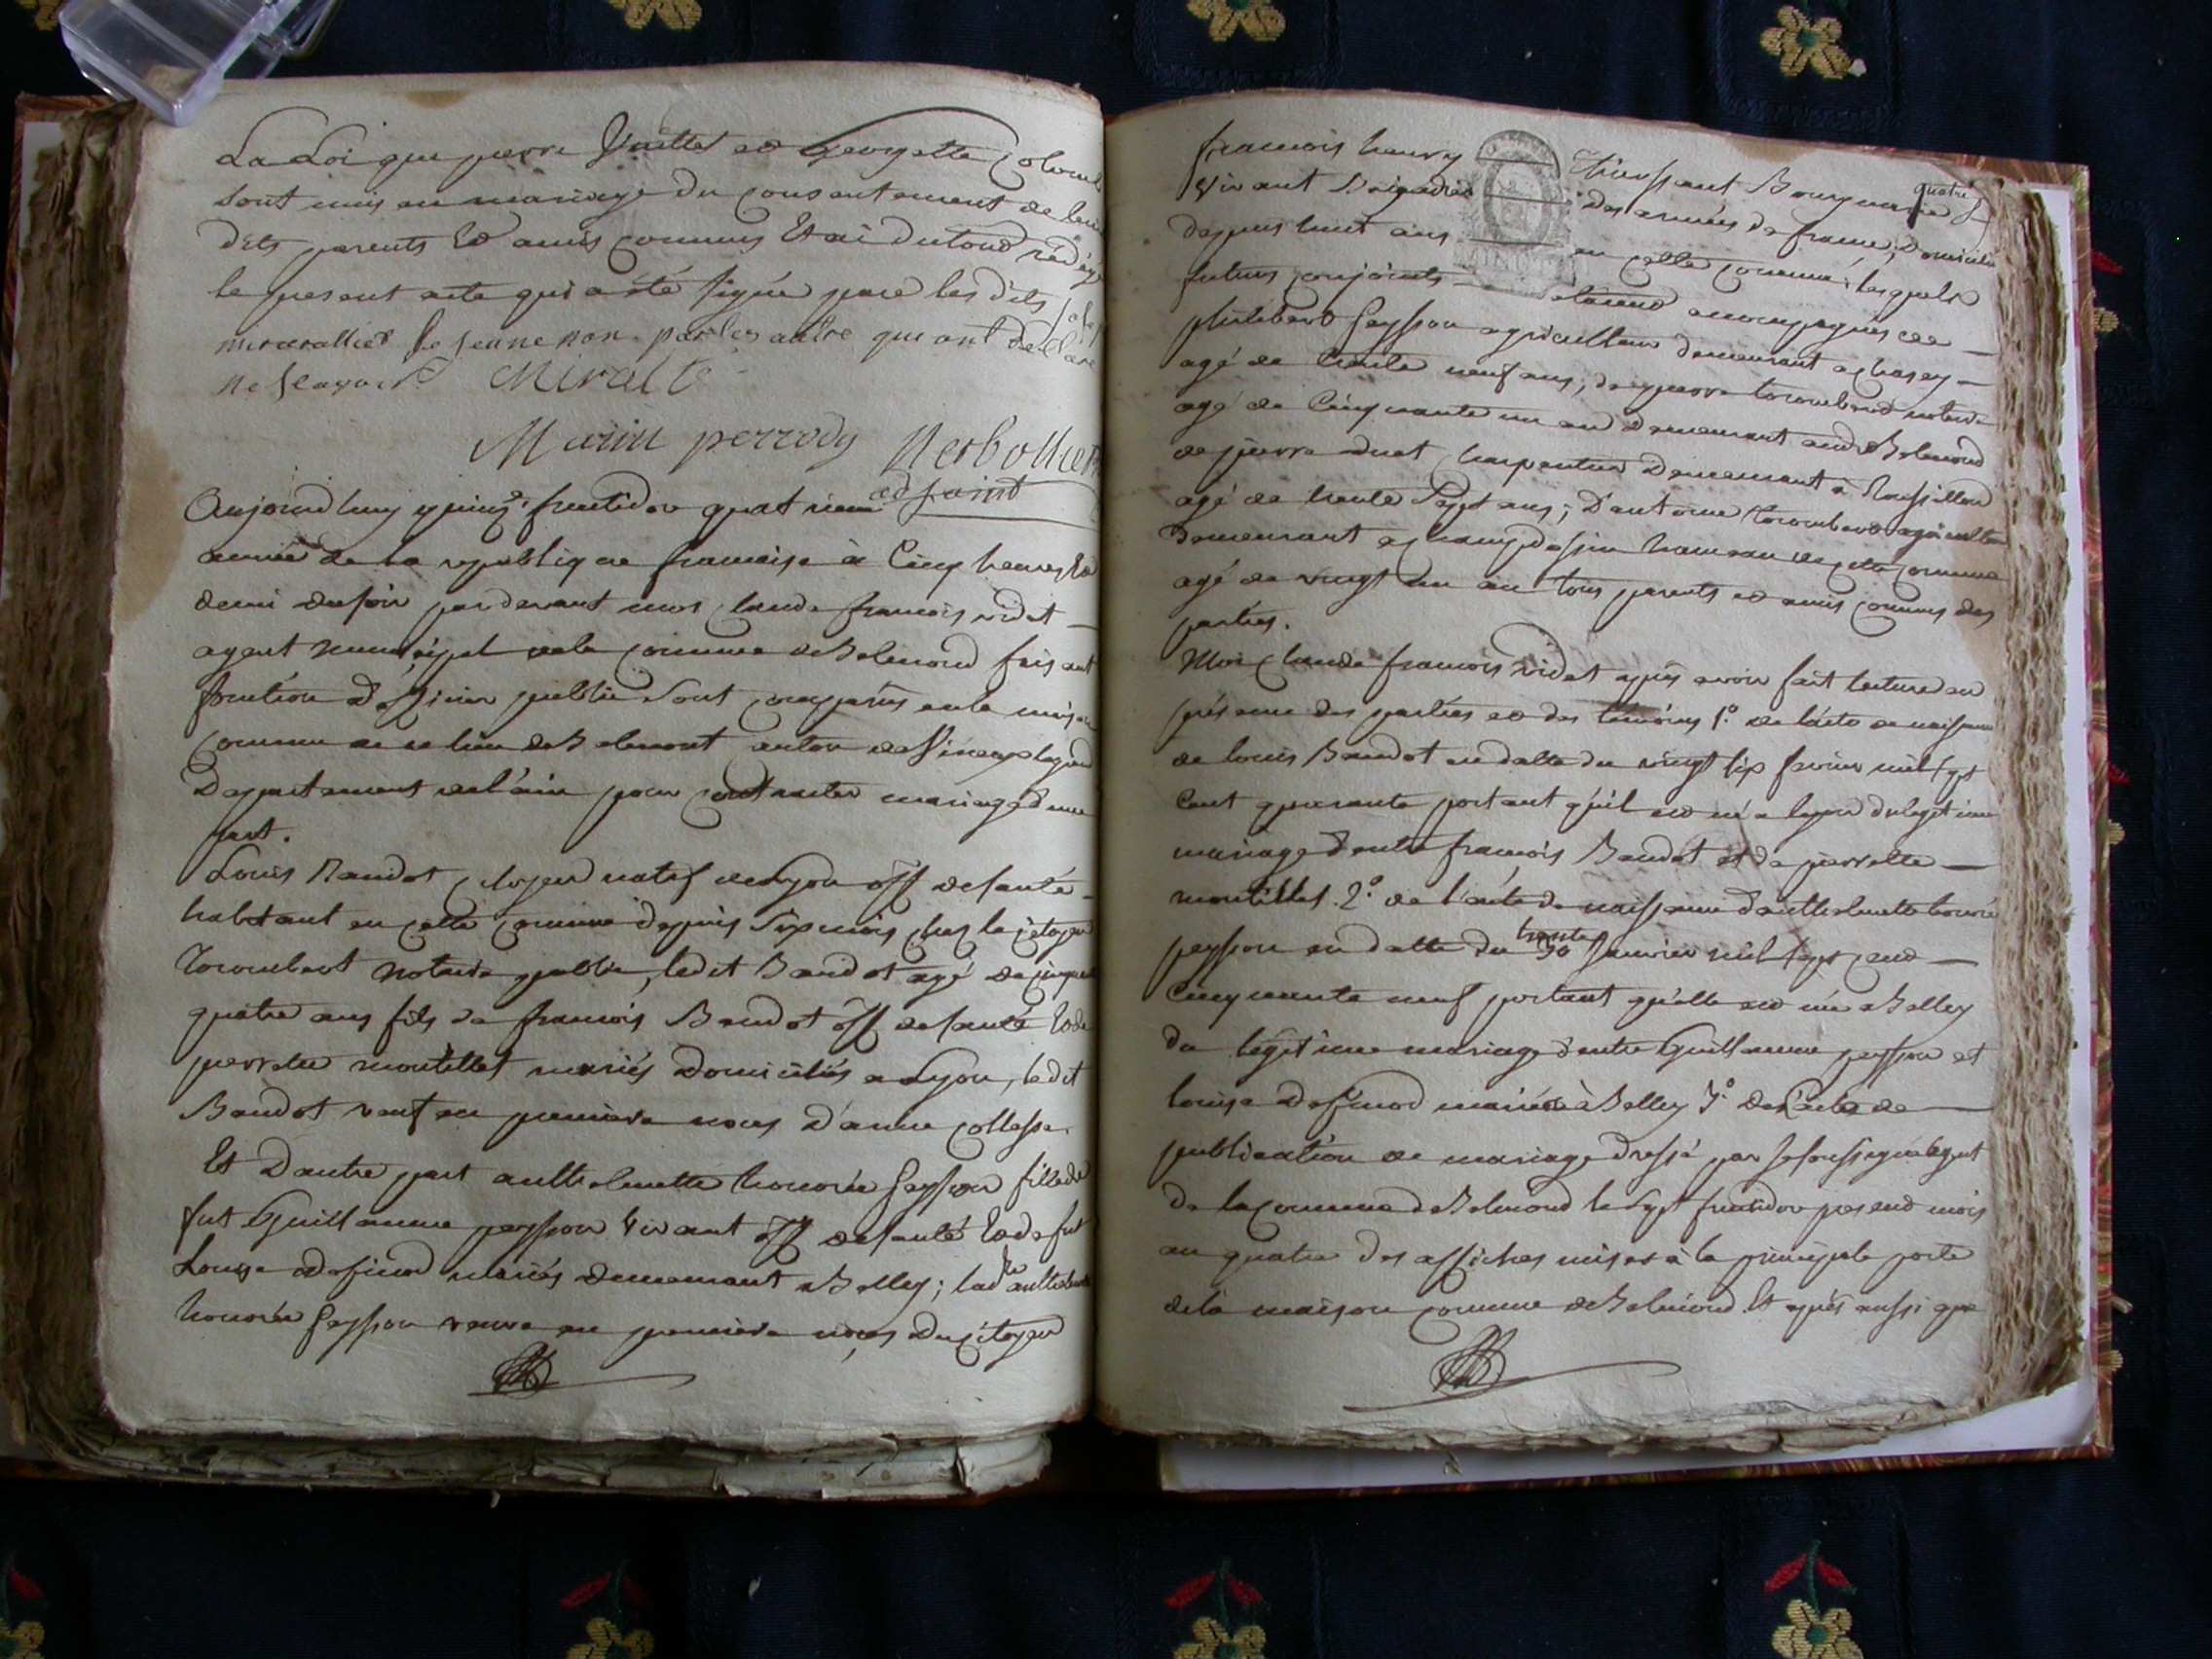 La Loi que pierre et Georgette
sont unis en mariage du consentement de leur
dits parents Et amis communs Et ai du tout rédigé
le present acte qui a été signé par les dits
le jeune non par les autre qui ont declare
ne scavoir Miralt
Marin perrody
adjoint
Aujourd'huy quinze fructidor quatrieme
année de la republique francaise à Cinq heures Et
demi du soir par devant moi claude francois videt
agent municipal de la commune de Belmond faisant
fonction d'officier public sont comparus en la maison
commune de ce lieu de Belmont canton de
Departement de l'ain pour contracter mariage d'une
part.
Louis Baudot citoyen natif de Lyon off de santé
habitant en cette commune depuis six mois chez le citoyen
Trocombert notaire public, ledit Baudot agé de cinquante
quatre ans fils de francois Baudot off de santé Et de
pierrette montillet mariés domiciliés a Lyon, ledit
Baudot veuf en premiere noces d'anne
Et d'autre part anthelmette honorée peysson fille de
fut Guillaume peysson vivant off de santé Et de fut
Louise mariés demeurant a Belley; lad anthelmette
honorée peysson veuve en premiere noces du citoyen
francois henry quatre
vivant Brigadier des armées de france, domiciliés
depuis huit ans en cette commune; lesquels
futurs conjoints etaient accompagnés de
philibert peysson agriculteur demeurant a chazey
agé de trente neuf ans, de pierre trocombert notaire
agé de Cinquante un an demeurant audit Belmond
de pierre charpentier demeurant à Roussillon
agé de trente sept ans; D'antoine trocombert agriculteur
demeurant a hameau de cette commune
agé de vingt un an tous parents et amis communs des
parties.
Moi claude francois videt apres avoir fait lecture en
présence des parties et des témoins 1º. de l'acte de naissance
de louis Baudot en datte du vingt six fevrier mil sept
cent quarante portant qu'il est né a lyon du legitime
mariage d'entre francois Baudot et de pierrette
montillet. 2º de l'acte de naissance d'anthelmette honorée
peysson en datte du trente 30 janvier mil sept cent
cinquante neuf portant qu'elle est née a Belley
du légitime mariage d'entre Guillaume peysson et
louise mariés à Belley 3º de l'acte de
publication de mariage dressé par le soussigné agent
de la commune de Belmond le sept fructidor present mois
an quatre des affiches mises à la principale porte
de la maison commune de Belmond. Et apres aussi que